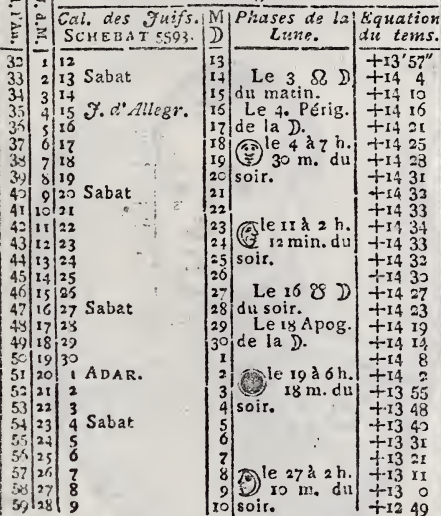 l'An. J. d. M. Cal. des Juifs. M Phases de la Equation
SCHEBAT 5593. D Lune. du tems.
32 1 12 13 +13'57"
33 2 13 Sabat 14 Le 3 ☊ ☽ +14 4
34 3 14 15 du matin. +14 10
35 4 15 J. d'Allegr. 16 Le 4. Périg. +14 16
36 5 16 17 de la ☽. +14 21
37 6 17 18 le 4 à 7 h. +14 25
38 7 18 19 30 m. du +14 28
39 8 19 20 soir. +14 31
40 9 20 Sabat 21 +14 32
41 10 21 22 +14 33
42 11 22 23 le 11 à 2 h. +14 34
43 12 23 24 12 min. du +14 33
44 13 24 25 soir. +14 32
45 14 25 26 +14 30
46 15 26 27 Le 16 ☋ ☽ +14 27
47 16 27 Sabat 28 du soir. +14 23
48 17 28 29 Le 18 Apog. +14 19
49 18 29 30 de la ☽. +14 14
50 19 30 1 +14 8
51 20 1 ADAR. 2 le 19 à 6 h. +14 2
52 21 2 3 18 m. du +13 55
53 22 3 4 soir. +13 48
54 23 4 Sabat 5 +13 40
55 24 5 6 +13 31
56 25 6 7 +13 21
57 26 7 8 le 27 à 2 h. +13 11
58 27 8 9 10 m. du +13 0
59 28 9 10 soir. +12 49